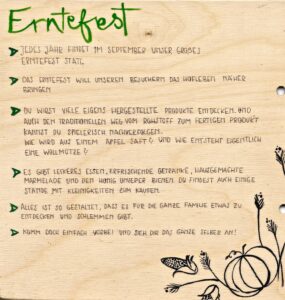 Erntefest
JEDES JAHR FINDET IM SEPTEMBER UNSER GROßES
ERNTEFEST STATT.
DAS ERNTEFEST WILL UNSEREN BESUCHERN DAS HOFLEBEN NÄHER
BRINGEN
DU WIRST VIELE EIGENS HERGESTELLTE PRODUKTE ENTDECKEN UND
AUCH DEN TRADITIONELLEN WEG VOM ROHSTOFF ZUM FERTIGEN PRODUKT
KANNST DU SPIELERISCH NACHVERFOLGEN.
WIE WIRD AUS EINEM APFEL SAFT? UND WIE ENTSTEHT EIGENTLICH
EINE WOLLMÜTZE?
ES GIBT LECKERES ESSEN, ERFRISCHENDE GETRÄNKE, HAUSGEMACHTE
MARMELADE UND DEN HONIG UNSERER BIENEN. DU FINDEST AUCH EINIGE
STÄNDE MIT KLEINIGKEITEN ZUM KAUFEN.
ALLES IST SO GESTALTET, DASS ES FÜR DIE GANZE FAMILIE ETWAS ZU
ENTDECKEN UND SCHLEMMEN GIBT.
KOMM DOCH EINFACH VORBEI UND SIEH DIR DAS GANZE SELBER AN!